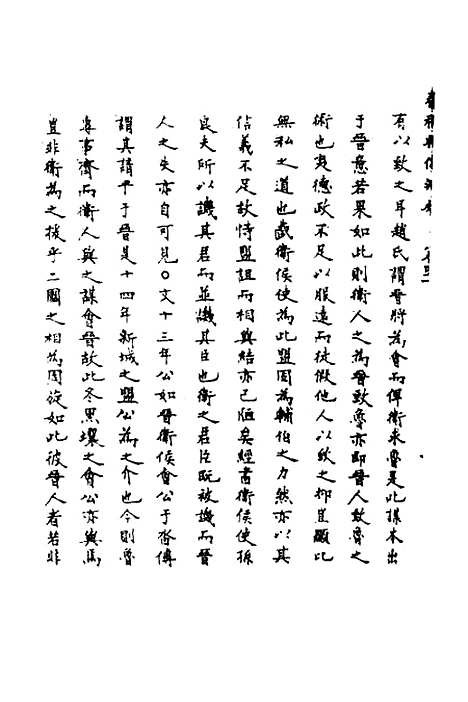 有以致之耳趙氏謂晉將為會而俾衛求魯是此謀本出
于晉意若果如此則衛人之為晉致魯亦即晉人致魯之
術也夷德政不足以服遠而徒假他人以致之抑且顯此
無私之道也哉衛侯使為此盟固為輔伯之力然亦以其
信義不足故恃盟詛而相與結亦已陋矣經書衛侯使孫
良夫所以譏其君而並譏其臣也衛之君臣既被譏而晉
人之失亦自可見○文十三年公如晉衛侯會公于沓傳
謂其請平于晉是十四年新城之盟公為之介也今則魯
專事齊而衛人與之謀會晉故此冬黑壤之會公亦與焉
豈非衛為之援乎二國之相為周旋如此彼晉人者若非